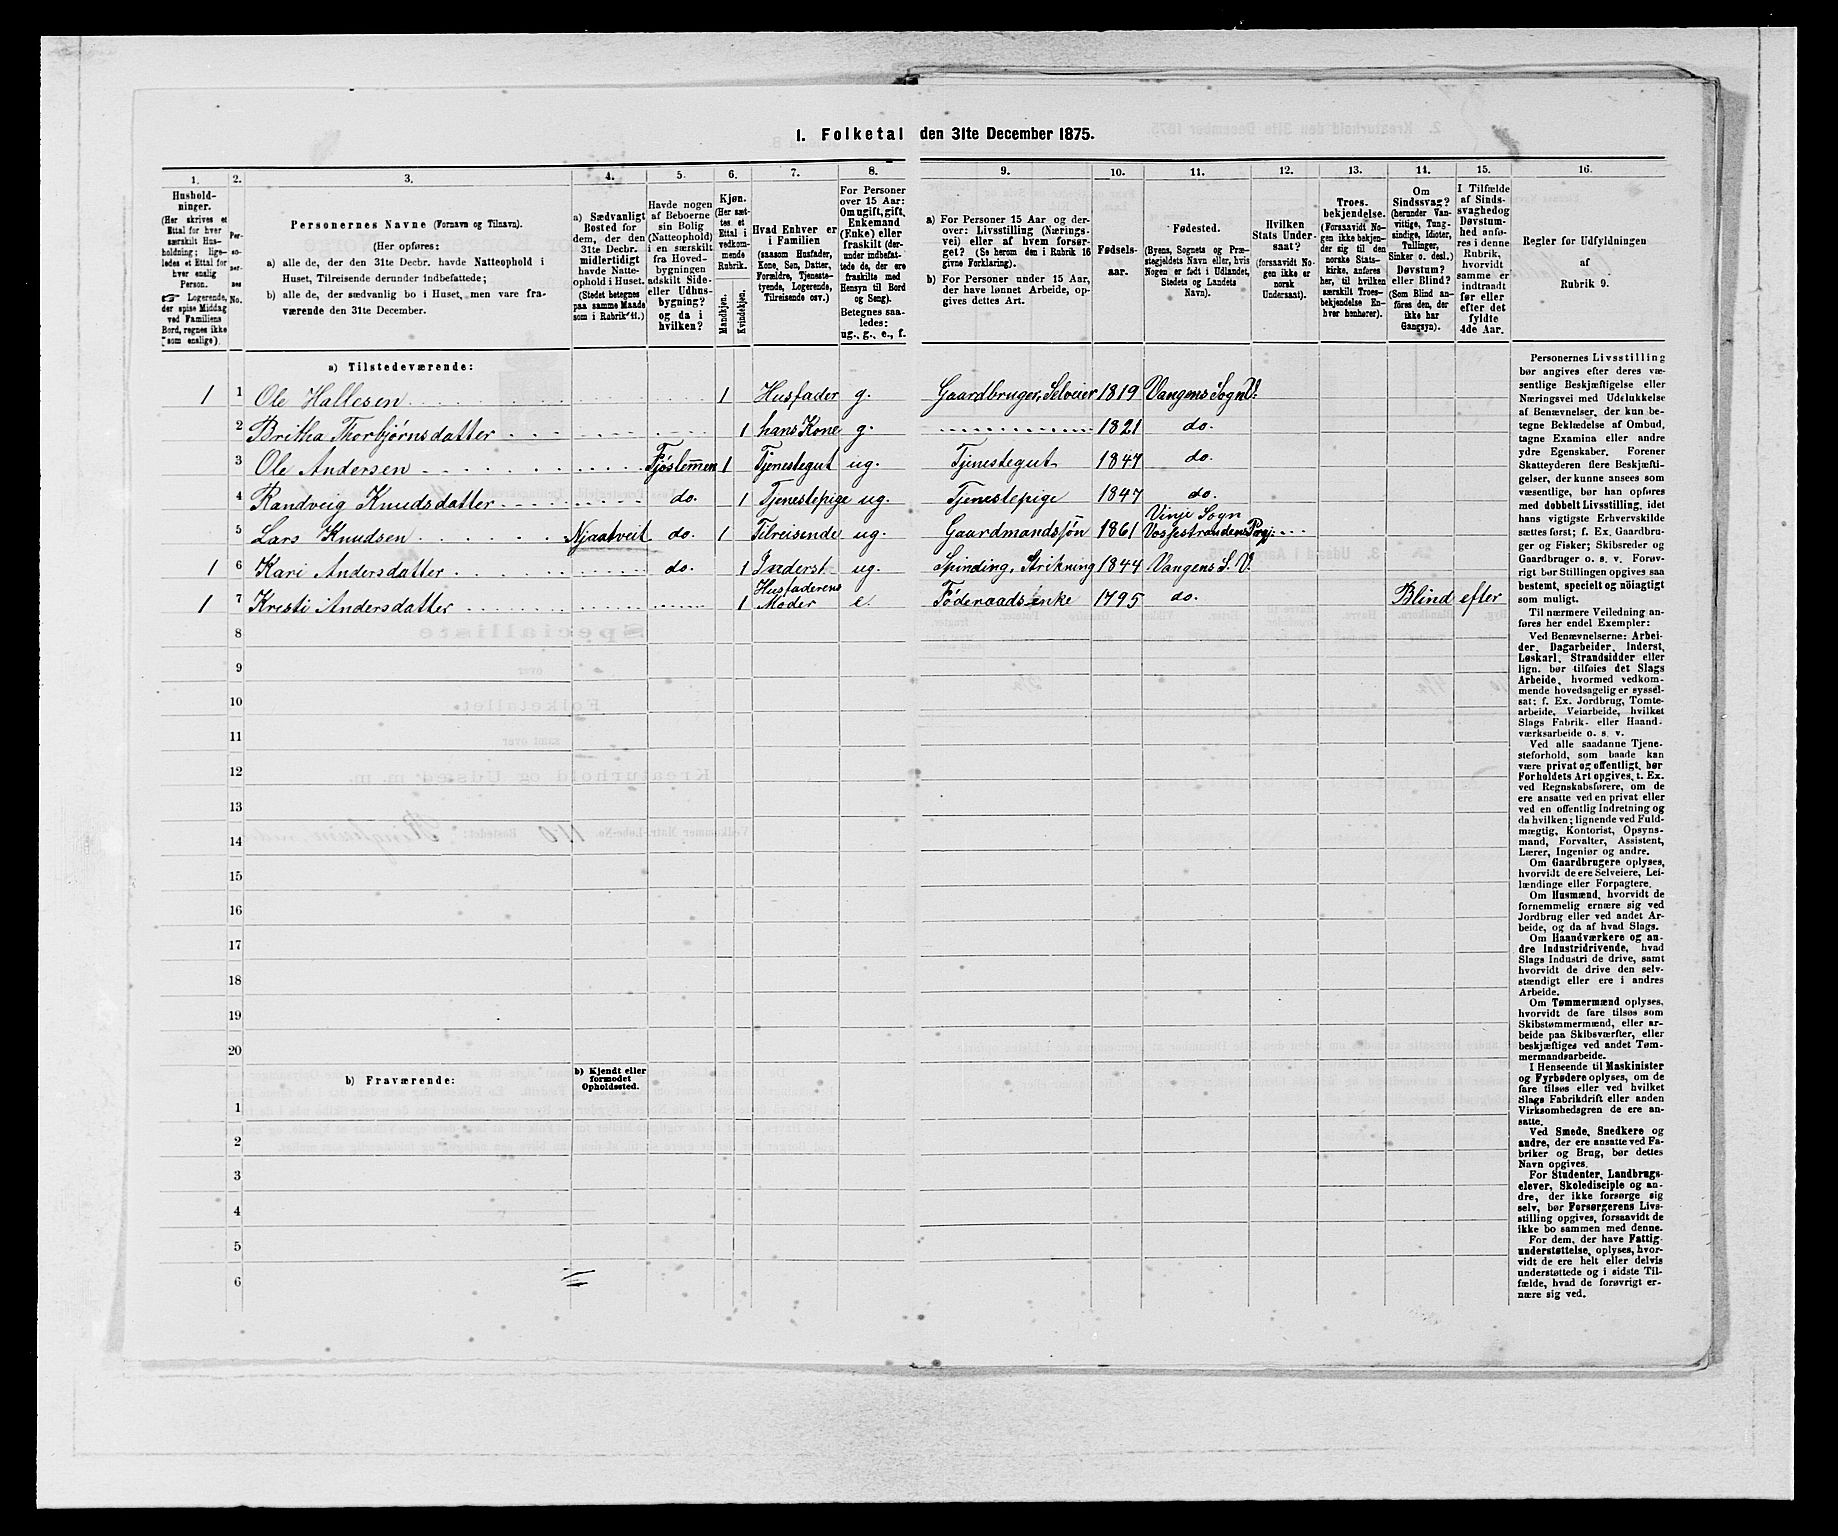 1. Folketal den 31te December 1875.
1. 2. 3. 4. 5. 6. 7. 8. 9. 10. 11. 12. 13. 14. 15. 16.
Hushold-
ninger.
(Her skrives et
Ettal for hver
særskilt Hus-
holdning; lige-
ledes et Ettal for
hver enslig
Person.
☞ Logerende,
der spise Middag
ved Familiens
Bord, regnes ikke
som enslige).
Per-
so-
ner-
nes
No.
Personernes Navne (Fornavn og Tilnavn).
(Her opføres:
a) alle de, der den 31te Decbr. havde Natteophold i
Huset, Tilreisende derunder indbefattede;
b) alle de, der sædvanlig bo i Huset, men vare fra-
værende den 31te December.
a) Sædvanligt
Bosted for
dem, der den
31te Decbr.
midlertidigt
havde Natte-
ophold i Huset.
(Stedet betegnes
paa samme Maade
som i Rubrik 11.)
Havde nogen
af Beboerne
sin Bolig
(Natteophold)
i en særskilt
fra Hoved-
bygningen
adskilt Side-
eller Udhus-
bygning?
og da i
hvilken?
Kjøn.
(Her sæt-
tes et
Ettal i
vedkom-
mende
Rubrik.
Mandkjøn.
Kvindekjøn.
Hvad Enhver er
i Familien
(saasom Husfader,
Kone, Søn, Datter,
Forældre, Tjeneste-
tyende, Logerende,
Tilreisende osv.)
For Personer
over 15 Aar:
Om ugift, gift,
Enkemand
(Enke) eller
fraskilt (der-
under indbefat-
tede de, der ere
fraskilte med
Hensyn til Bord
og Seng).
Betegnes saa-
ledes:
ug., g., e., f.
a) For Personer 15 Aar og der-
over: Livsstilling (Nærings-
vei) eller af hvem forsør-
get? (Se herom den i Rubrik 16
givne Forklaring).
b) For Personer under 15 Aar,
der have lønnet Arbeide, op-
gives dettes Art.
Fødsels-
aar.
Fødested.
(Byens, Sognets og Præ-
stegjeldets Navn eller, hvis
Nogen er født i Udlandet,
Stedets og Landets
Navn).
Hvilken
Stats Under-
saat?
(forsaavidt No-
gen ikke er
norsk
Undersaat).
Troes-
bekjendelse.
(Forsaavidt No-
gen ikke bekjen-
der sig til den
norske Stats-
kirke, anføres
her, til hvilken
særskilt Troes-
bekjendelse En-
hver henhører).
Om
Sindssvag?
(herunder Van-
vittige, Tung-
sindige, Idioter,
Tullinger,
Sinker o. desl.)
Døvstum?
eller Blind?
(Som Blind an-
føres den, der
ikke har
Gangsyn).
I Tilfælde
af Sinds-
svaghed og
Døvstum-
hed anfø-
res i denne
Rubrik,
hvorvidt
samme er
indtraadt
før eller
efter det
fyldte
4de Aar.
Regler for Udfyldningen
af
Rubrik 9.
a) Tilstedeværende:
1 1 Ole Hallesen 1 Husfader g. Gaardbruger, Selveier 1819 Vangens Sogn V.
2 Britha Thorbjørnsdatter 1 hans Kone g. 1821 do.
3 Ole Andersen Fjøslemmen 1 Tjenestegut ug. Tjenestegut 1847 do.
4 Randveig Knudsdatter do. 1 Tjenestepige ug. Tjenestepige 1847 do.
5 Lars Knudsen Njaatveit do. 1 Tilreisende ug. Gaardmandssøn 1861 Vinje Sogn
Vossestrandens Prgj.
1 6 Kari Andersdatter do. 1 Inderst ug. Spinding, Strikning 1844 Vangens S. V.
1 7 Kresti Andersdatter 1 Husfaderens
Moder e. Føderaadsenke 1795 do. Blind efter
8
9
10
11
12
13
14
15
16
17
18
19
20
b) Fraværende:
b) Kjendt eller
formodet
Opholdssted.
1
2
3
4
5
6
Personernes Livsstilling
bør angives efter deres væ-
sentlige Beskjæftigelse eller
Næringsvei med Udelukkelse
af Benævnelser, der kun be-
tegne Beklædelse af Ombud,
tagne Examina eller andre
ydre Egenskaber. Forener
Skatteyderen flere Beskjæfti-
gelser, der kunne ansees som
væsentlige, bør han opføres
med dobbelt Livsstilling, idet
hans vigtigste Erhvervskilde
sættes først; f. Ex. Gaardbru-
ger og Fisker; Skibsreder og
Gaardbruger o. s. v. Forøv-
rigt bør Stillingen opgives saa
bestemt, specielt og nöiagtigt
som muligt.
Til nærmere Veiledning an-
føres her endel Exempler:
Ved Benævnelserne: Arbei-
der, Dagarbeider, Inderst,
Løskarl, Strandsidder eller
lign. bør tilføies det Slags
Arbeide, hvormed vedkom-
mende hovedsagelig er syssel-
sat; f. Ex. Jordbrug, Tomte-
arbeide, Veiarbeide, hvilket
Slags Fabrik- eller Haand-
værksarbeide o. s. v.
Ved alle saadanne Tjene-
steforhold, som baade kan
være privat og offentligt, bør
Forholdets Art opgives, t. Ex.
ved Regnskabsførere, om de
ere ansatte ved en privat eller
ved en offentlig Indretning og
da hvilken; lignende ved Fuld-
mægtig, Kontorist, Opsyns-
mand, Forvalter, Assistent,
Lærer, Ingeniør og andre.
Om Gaardbrugere oplyses,
hvorvidt de ere Selveiere, Lei-
lændinge eller Forpagtere.
Om Husmænd, hvorvidt de
fornemmelig ernære sig ved
Jordbrug eller ved andet Ar-
beide, og da af hvad Slags.
Om Haandværkere og an-
dre Industridrivende, hvad
Slags Industri de drive, samt
hvorvidt de drive den selv-
stændigt eller ere i andres
Arbeide.
Om Tømmermænd oplyses,
hvorvidt de fare tilsøs som
Skibstømmermænd, eller ar-
beide paa Skibsværfter, eller
beskjæftiges ved andet Tøm-
mermandsarbeide.
I Henseende til Maskinister
og Fyrbødere oplyses, om de
fare tilsøs eller ved hvilket
Slags Fabrikdrift eller anden
Virksomhedsgren de ere an-
satte.
Ved Smede, Snedkere og
andre, der ere ansatte ved Fa-
briker og Brug, bør dettes
Navn opgives.
For Studenter, Landbrugs-
elever, Skoledisciple og an-
dre, der ikke forsørge sig
selv, bør Forsørgerens Livs-
stilling opgives, forsaavidt de
ikke bo sammen med denne.
For dem, der have Fattig-
understøttelse, oplyses, hvor-
vidt de ere helt eller delvis
understøttede og i sidste Til-
fælde, hvad de forøvrigt er-
nære sig ved.